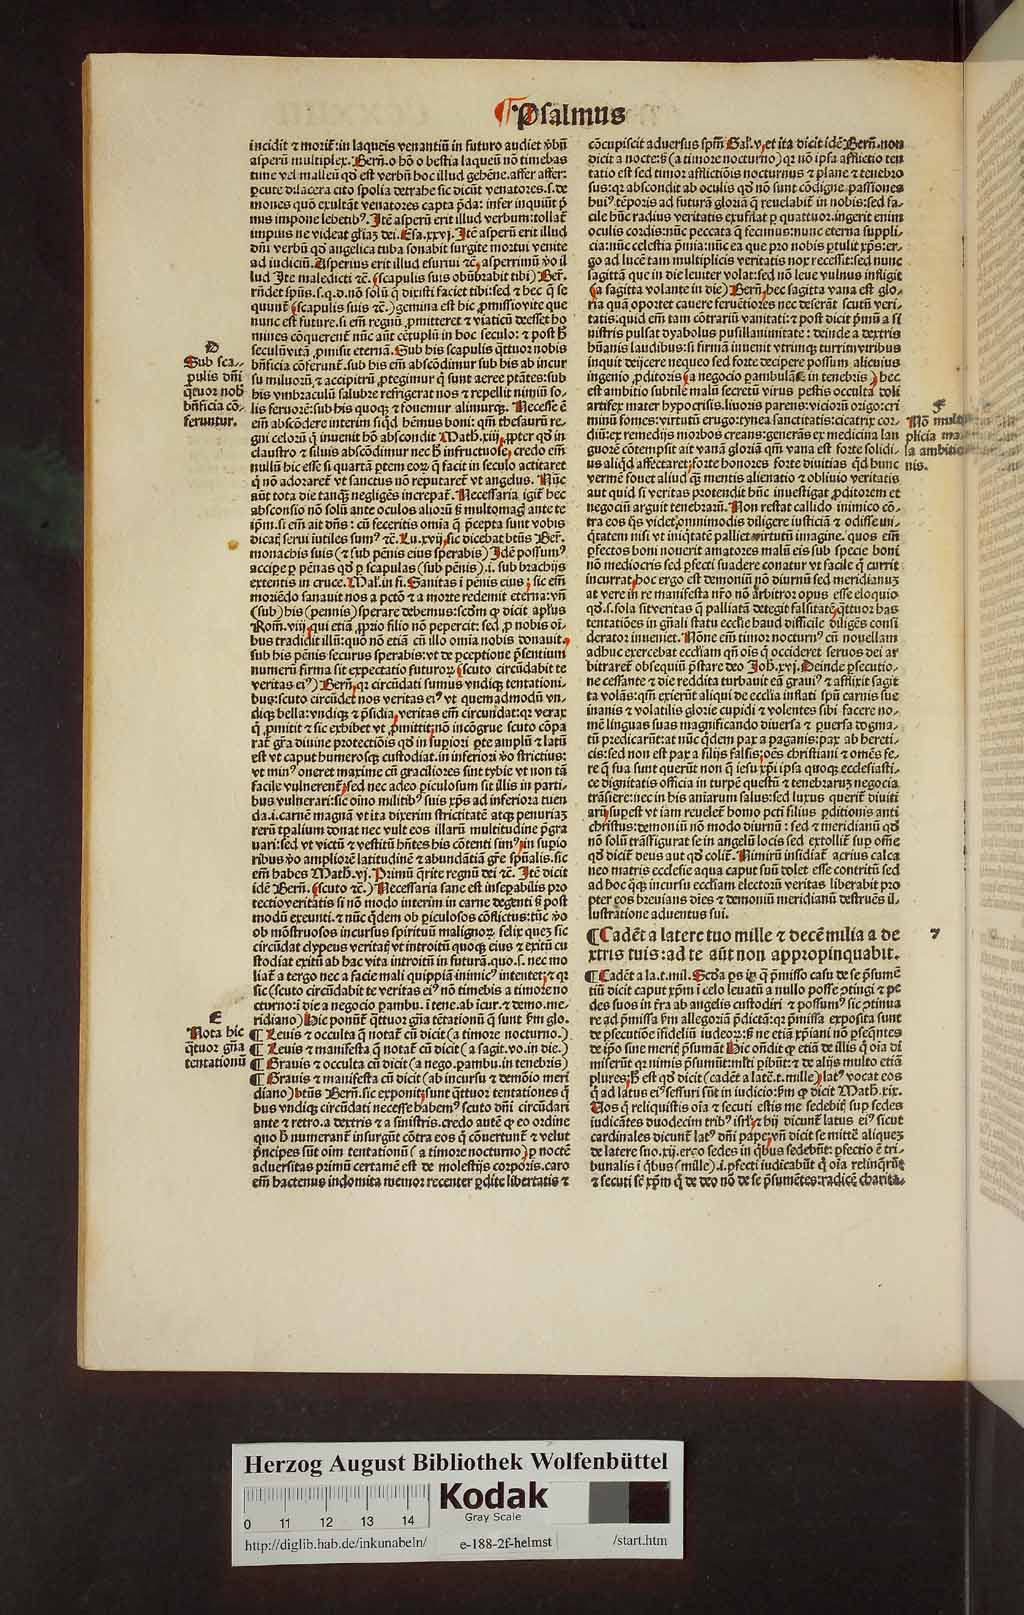 ¶ Psalmus
incidit ⁊ morit᷑: in laqueis venantiū in futuro audiet v̓bū
asperū multiplex. Bern̄. o hō o bestia laqueū nō timebas
tunc vel malleū qd̓ est verbū hoc illud gehēne. affer affer:
ꝑcute dilacera cito spolia detrahe sic dicūt venatores .s. de
mones quō exultāt venatores capta p̄da: infer inquiūt p̄
mus impone lebetibꝰ. Itē asperū erit illud verbum: tollat᷑
impius ne videat gl̓iaꝫ dei. Esa. xxvj. Itē asperū erit illud
dn̄i verbū qd̓ angelica tuba sonabit surgite mortui venite
ad iudiciū. Asperius erit illud esuriui ⁊c̄, asperrimū v̓o il
lud Ite maledicti ⁊c̄. (scapulis suis obūbrabit tibi) Ber̄.
rn̄det sp̄us .s. q. d. nō solū q̄ dixisti faciet tibi: sed ⁊ hec q̄ se
quunt᷑ (scapulis suis ⁊c̄.) gemina est hic ꝓmissio vite que
nunc est ⁊ future. si em̄ regnū ꝓmitteret ⁊ viaticū deesset ho
mines cōquerent᷑ nūc aūt cētuplū in hoc seculo: ⁊ post h̓
seculū vitā ꝓmisit eternā. Sub his scapulis q̄ttuor nobis
bn̄ficia cōferunt᷑. sub his em̄ abscōdimur sub his ab incur
su miluorū ⁊ accipitrū ꝓtegimur q̄ sunt aeree ptātes: sub
his vmbraculū salubre refrigerat nos ⁊ repellit nimiū so-
lis feruorē: sub his quoqꝫ ⁊ fouemur alimurqꝫ. Necesse ē
em̄ abscōdere interim siqd̓ hēmus boni: qm̄ thesaurū re-
gni celorū q̄ inuenit hō abscondit Math. xiij, ꝓpter qd̓ in
claustro ⁊ siluis abscōdimur nec h̓ infructuose, credo em̄
nullū hic esse si quartā ꝑtem eorꝫ q̄ facit in seculo actitaret
q̄ nō adoraret᷑ vt sanctus nō reputaret᷑ vt angelus. Nūc
aūt tota die tanqꝫ negligēs increpat᷑. Necessaria igit᷑ hec
absconsio nō solū ante oculos aliorū sꝫ multomagꝭ ante te
ip̄m. si em̄ ait dn̄s: cū feceritis omia q̄ p̄cepta sunt vobis
dicatꝭ serui iutiles sumꝰ ⁊c̄. Lu. xvij, sic dicebat bt̄us Ber̄.
monachis suis (⁊ sub pēnis eius sperabis) Idē possumꝰ
accipe ꝑ pēnas qd̓ ꝑ scapulas (sub pēnis) .i. sub brachijs
extentis in cruce. Mal. in fi. Sanitas i pēnis eius; sic em̄
moriēdo sanauit nos a pctō ⁊ a morte redemit eterna: vn̄
(sub) his (pennis) sperare debemus: scdm ꝙ dicit apl̓us
Rom̄. viij, qui etiā ꝓprio filio nō pepercit: sed ꝓ nobis oi-
bus tradidit illū: quō nō etiā cū illo omia nobis donauit.
sub his pēnis securus sperabis: vt de ꝑceptione p̄sentium
numerū firma sit expectatio futurorꝫ (scuto circūdabit te
veritas eiꝰ) Bern̄, qꝛ circūdati sumus vndiqꝫ tentationi-
bus: scuto circūdet nos veritas eiꝰ vt quemadmodū vn-
diqꝫ bella: vndiqꝫ ⁊ p̄sidia, veritas em̄ circundat: qꝛ verax
q̄ ꝓmitit ⁊ sic exhibet vt ꝓmittit; nō incōgrue scuto cōpa
rat᷑ gr̄a diuine protectiōis qd̓ in supiori ꝑte amplū ⁊ latū
est vt caput humerosqꝫ custodiat. in inferiori v̓o strictius:
vt minꝰ oneret maxime cū graciliores sint tybie vt non tā
facile vulnerent᷑, sed nec adeo ꝑiculosum sit illis in parti-
bus vulnerari: sic oīno militibꝰ suis xp̄s ad inferiora tuen
da .i. carnē magnā vt ita dixerim strictitatē atqꝫ penuriaꝫ
rerū tꝑalium donat nec vult eos illarū multitudine p̄gra
uari: sed vt victū ⁊ vestitū hn̄tes his cōtenti simꝰ, in supio
ribus v̓o ampliorē latitudinē ⁊ abundātiā gr̄e spūalis. sic
em̄ habes Math. vj. Primū q̄rite regnū dei ⁊c̄. Itē dicit
idē Bern̄. (scuto ⁊c̄.) Necessaria sane est insepabilis pro
tectio veritatis si nō modo interim in carne degenti sꝫ post
modū exeunti. ⁊ nūc q̄dem ob ꝑiculosos cōflictus: tūc v̓o
ob mōstruosos incursus spirituū malignorꝫ. felix quez sic
circūdat clypeus veritatꝭ vt introitū quoqꝫ eius ⁊ exitū cu
stodiat exitū ab hac vita introitū in futurā. quo .s. nec mo
liat᷑ a tergo nec a facie mali quippiā inimicꝰ intentet; ⁊ qꝛ
sic (scuto circūdabit te veritas eiꝰ nō timebis a timore no
cturno: i die a negocio pambu. i tene. ab icur. ⁊ demo. me.
ridiano) Hic ponūt᷑ q̄ttuor gn̄a tētationū q̄ sunt hm̄ glo.
¶ Leuis ⁊ occulta q̄ notat᷑ cū dicit (a timore nocturno.)
¶ Leuis ⁊ manifesta q̄ notat᷑ cū dicit (a sagit. vo. in die.)
¶ Grauis ⁊ occulta cū dicit (a nego. pambu. in tenebris)
¶ Grauis ⁊ manifesta cū dicit (ab incursu ⁊ demōio meri
diano) bt̄us Bern̄. sic exponit, sunt q̄ttuor tentationes q̄
bus vndiqꝫ circūdati necesse habemꝰ scuto dn̄i circūdari
ante ⁊ retro. a dextris ⁊ a sinistris. credo autē ꝙ eo ordine
quo h̓ numerant᷑ insurgūt cōtra eos q̄ cōuertunt᷑ ⁊ velut
p̄ncipes sūt oim tentationū (a timore nocturno) ꝑ noctē
aduersitas primū certamē est de molestijs corporis. caro
em̄ hactenus indomita memor recenter ꝑdite libertatis ⁊
D
Sub sca-
pulis dn̄i
q̄tuor nob̓
bn̄ficia cō-
feruntur.
E
Nota hic
q̄tuor gn̄a
tentationū
cōcupiscit aduersus spm̄ Gal. v, et ita dicit idē Bern̄. non
dicit a nocte: sꝫ (a timore nocturno) qꝛ nō ipsa afflictio ten
tatio est sed timor afflictiōis nocturnus ⁊ plane ⁊ tenebro
sus: qꝛ abscondit ab oculis qd̓ nō sunt cōdigne passiones
huiꝰ tēporis ad futurā gloriā q̄ reuelabit᷑ in nobis: sed fa-
cile hūc radius veritatis exufflat ꝑ quattuor. ingerit enim
oculis cordis: nūc peccata q̄ fecimus: nunc eterna suppli-
cia: nūc celestia p̄mia: nūc ea que pro nobis ꝑtulit xp̄s: er-
go ad lucē tam multiplicis veritatis nox recessit: sed nunc
sagittā que in die leuiter volat: sed nō leue vulnus infligit
(a sagitta volante in die) Bern̄, hec sagitta vana est glo-
ria quā oportet cauere feruētiores nec deserāt scutū veri-
tatis: quid em̄ tam cōtrariū vanitati: ⁊ post dicit p̄mū a si
nistris pulsat dyabolus pusillanimitatē: deinde a dextris
hūanis laudibus: si firmā inuenit vtrinqꝫ turrim viribus
inquit deijcere nequeo sed forte decipere possum alicuius
ingenio ꝓditoris, (a negocio pambulāte in tenebris) hec
est ambitio subtile malū secretū virus pestis occulta doli
artifex mater hypocrisis. liuoris parens: viciorū origo: cri
minū fomes: virtutū erugo: tynea sanctitatis: cicatrix cor-
diū: ex remedijs morbos creans: generās ex medicina lan
guorē cōtempsit ait vanā gloriā qm̄ vana est forte solidi-
us aliqd̓ affectaret, forte honores forte diuitias qd̓ hunc
vermē fouet aliud qꝫ mentis alienatio ⁊ obliuio veritatis
aut quid si veritas protendit hūc inuestigat ꝓditorem et
negociū arguit tenebrarū. Non restat callido inimico cō-
tra eos q̄s videt, omnimodis diligere iusticiā ⁊ odisse ini-
q̄tatem nisi vt iniq̄tatē palliet virtutū imagine. quos em̄
ꝑfectos boni nouerit amatores malū eis sub specie boni
nō mediocris sed ꝑfecti suadere conatur vt facile q̄ currit
incurrat, hoc ergo est demoniū nō diurnū sed meridianuꝫ
at vere in re manifesta nr̄o nō arbitror opus esse eloquio
qd̓ .s. sola sit veritas q̄ palliatā detegit falsitatē, q̄ttuor has
tentatiōes in gn̄ali statu ecclie haud difficile diligēs consi
derator inueniet. Nōne em̄ timor nocturnꝰ cū nouellam
adhuc exercebat eccl̓iam qn̄ ois q̄ occideret seruos dei ar
bitraret᷑ obsequiū p̄stare deo Joh. xvj. Deinde ꝑsecutio-
ne cessante ⁊ die reddita turbauit eam grauiꝰ ⁊ afflixit sagit
ta volās: qm̄ exierūt aliqui de eccl̓ia inflati spū carnis sue
inanis ⁊ volatilis glorie cupidi ⁊ volentes sibi facere no-
mē linguas suas magnificando diuersa ⁊ ꝑuersa dogma-
tū predicarūt: at nūc q̄dem pax a paganis: pax ab hereti-
cis: sed non est pax a filijs falsis; oēs christiani ⁊ omēs fe-
re q̄ sua sunt querūt non q̄ iesu xp̄i ipsa quoqꝫ ecclesiasti-
ce dignitatis officia in turpē questū ⁊ tenebraruꝫ negocia
trāsiere: nec in his aniarum salus: sed luxus querit᷑ diuiti
arū, supest vt iam reuelet᷑ homo pcti filius ꝑditionis anti
christus: demoniū nō modo diurnū: sed ⁊ meridianū qd̓
nō solū trāsfigurat se in angelū locis sed extollit᷑ sup om̄e
qd̓ dicit᷑ deus aut qd̓ colit᷑. Nimirū insidiat᷑ acrius calca
neo matris ecclesie a qua caput suū dolet esse contritū sed
ad hoc q̄qꝫ incursu eccl̓iam electorū veritas liberabit pro
pter eos breuians dies ⁊ demoniū meridianū destruēs il-
lustratione aduentus sui.
¶ Cadēt a latere tuo mille ⁊ decē milia a de
xtris tuis: ad te aūt non appropinquabit.
¶ Cadēt a la. t. mil. Scd̓a ps in q̄ p̄misso casu de se p̄sumē
tiū dicit caput xp̄m i celo leuatū a nullo posse ꝯtingi ⁊ pe
des suos in t̄ra ab angelis custodiri ⁊ possumꝰ sic ꝯtinua
re ad p̄missa hm̄ allegoriā p̄dictā: qꝛ p̄missa exposita sunt
de ꝑsecutiōe ifideliū iudeorꝫ: sꝫ ne etiā xp̄iani nō ꝑseq̄ntes
de ip̄o sine merit̄ p̄sumāt Hic on̄dit ꝙ etiā de illis q̄ oia di
miserūt qꝛ nimis p̄sumūt: ml̓ti ꝑibūt: ⁊ de alijs multo etiā
plures, h̓ est qd̓ dicit (cadēt a late. t. mille) latꝰ vocat eos
q̄ ad latus eiꝰ sessuri sūt in iudicio: hm̄ ꝙ dicit Math. xix.
Vos q̄ reliquistis oia ⁊ secuti estis me sedebitꝭ sup sedes
iudicātes duodecim tribꝰ isrl̓, ⁊ hij dicunt᷑ latus eiꝰ sicut
cardinales dicunt᷑ latꝰ dn̄i pape, vn̄ dicit se mittē aliqueꝫ
de latere suo. xij. ergo sedes in q̄bus sedebūt: ꝑfectio ē tri-
bunalis i q̄bus (mille) .i. ꝑfecti iudicabūt q̄ oia relinq̄rūt
⁊ secuti sē xp̄m q̄ de deo nō de se p̄sumētes: radicē charita-
F
Nō mult
plicia ma
la ambitio
nis.
7
Herzog August Bibliothek Wolfenbüttel
0 11 12 13 14
Kodak
Gray Scale
http://diglib.hab.de/inkunabeln/ e-188-2f-helmst /start.htm